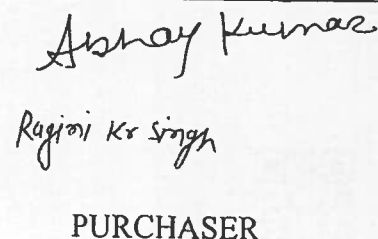 Abhay Kumar
Ragini Kr Singh
PURCHASER